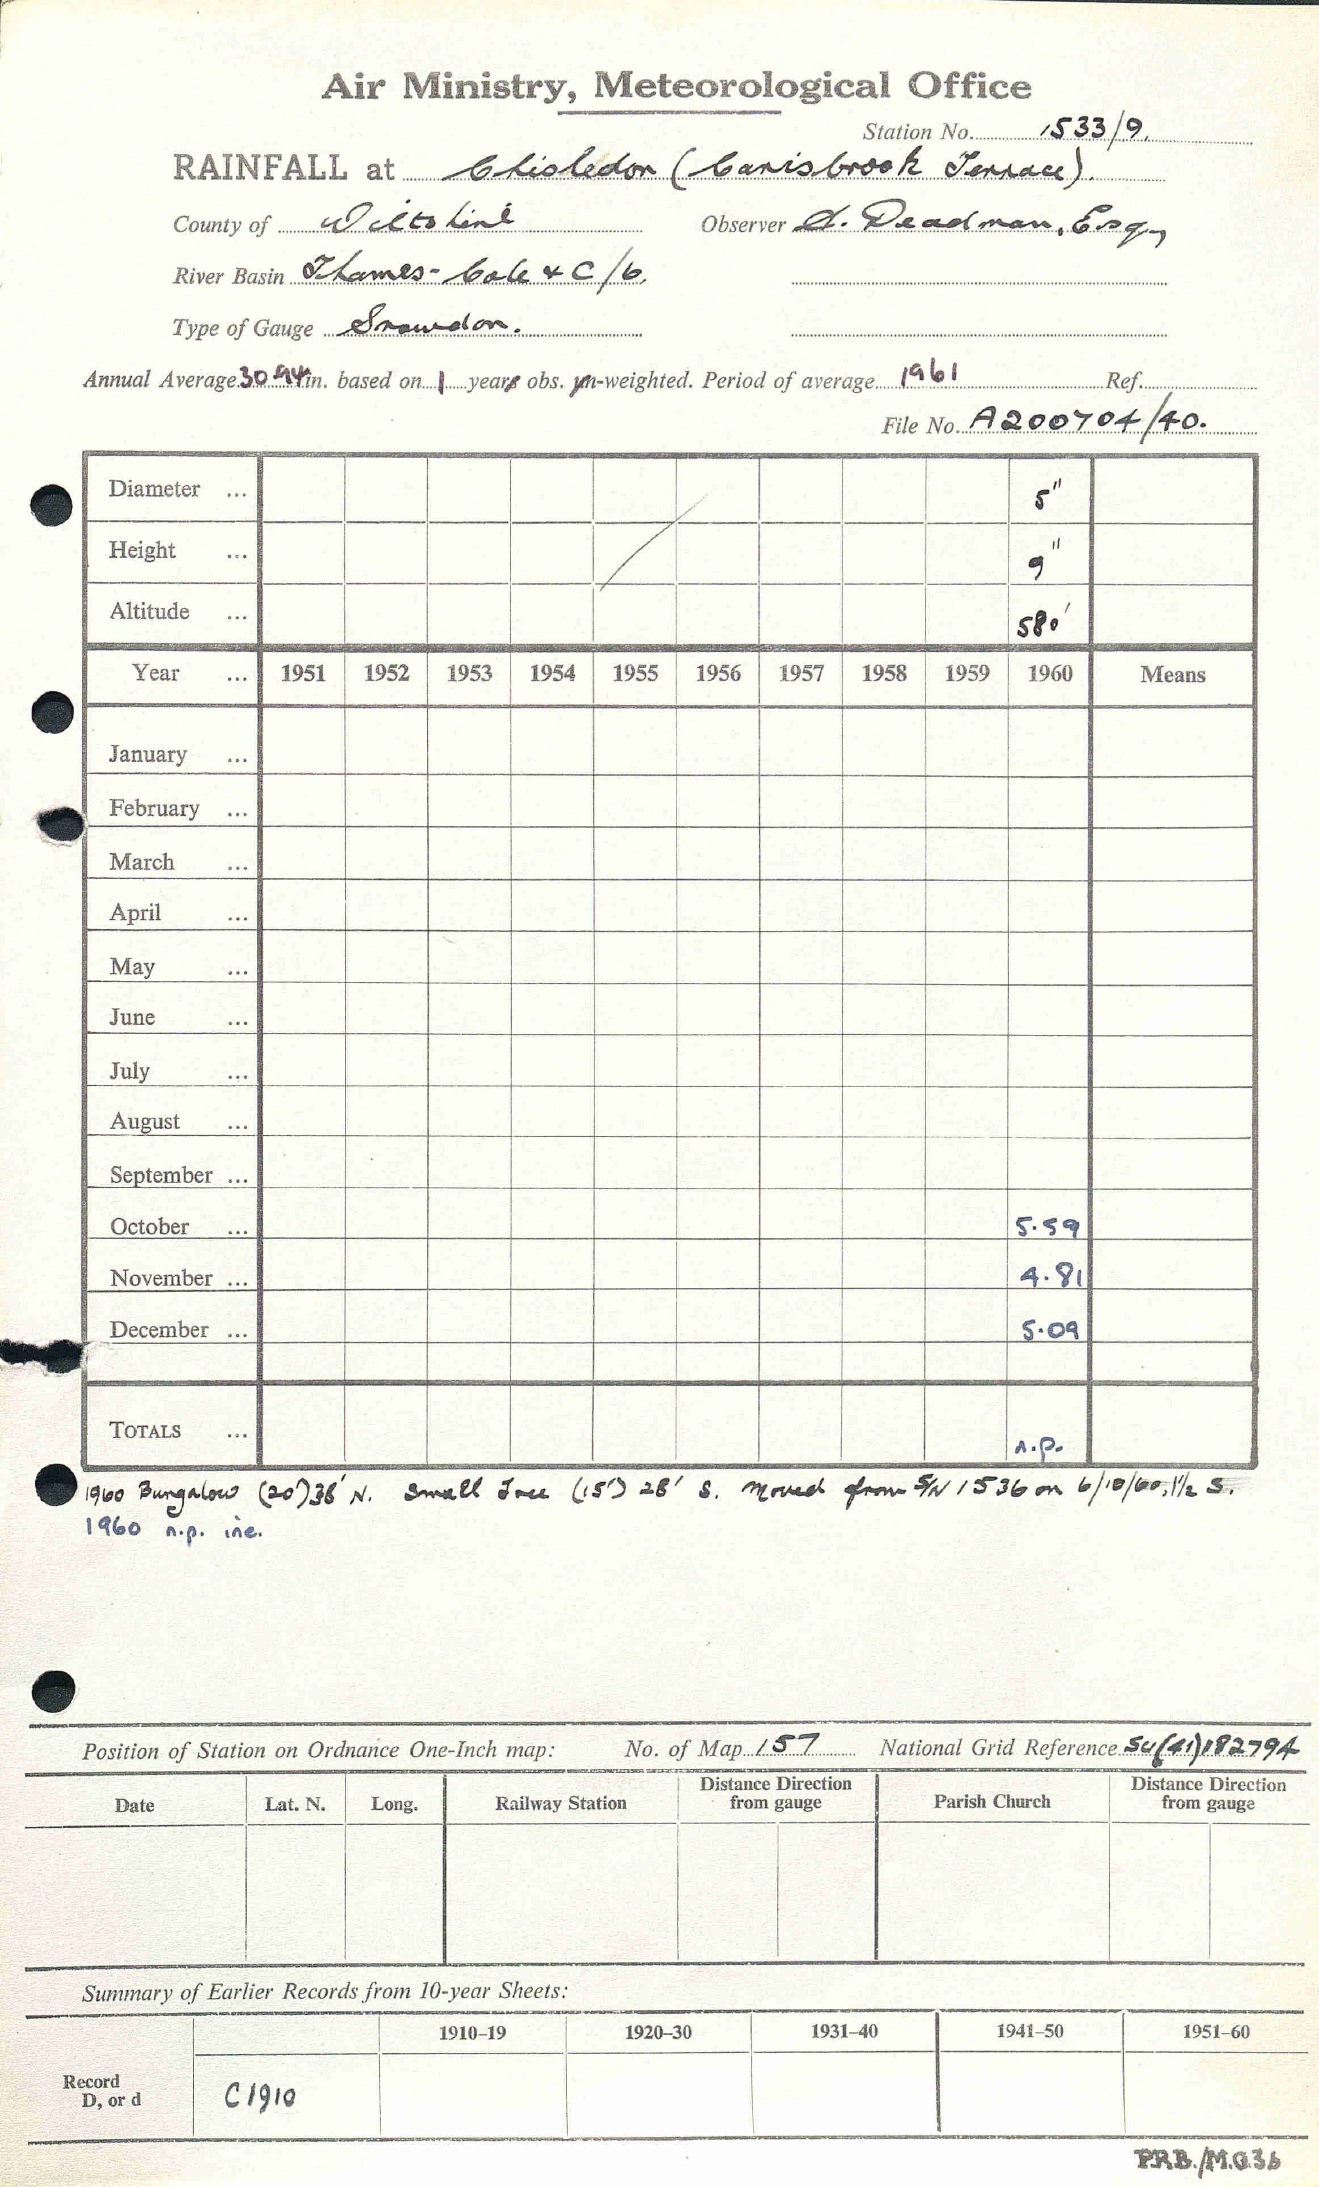 Air Ministry, Meteorological Office
Station No. 1533/9.
RAINFALL at Chisledon (Carisbrook Terrace).
County of Wiltshire Observer A. Deadman, Esq.,
River Basin Thames - Cole & C/6.
Type of Gauge Snowdon.
Annual Average 30.94 in. based on 1 years obs. un-weighted. Period of average 1961 Ref.
File No. A200704/40.
Diameter ... 5"
Height ... 9"
Altitude ... 580'
Year ... 1951 1952 1953 1954 1955 1956 1957 1958 1959 1960 Means
January ...
February ...
March ...
April ...
May ...
June ...
July ...
August ...
September ...
October ... 5.59
November ... 4.81
December ... 5.09
TOTALS ... n.p.
1960 Bungalow (20') 36' N. Small Tree (15') 28' S. Moved from S/N 1536 on 6/10/60, 1½ S.
1960 n.p. inc.
Position of Station on Ordnance One-Inch map: No. of Map 157 National Grid Reference SU(41)182794
Date Lat. N. Long. Railway Station Distance Direction from gauge Parish Church Distance Direction from gauge
Summary of Earlier Records from 10-year Sheets:
1910–19 1920–30 1931–40 1941–50 1951–60
Record
D, or d C1910
P.R.B./M.O.36